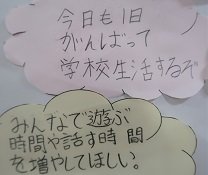 今日も1日
がんばって
学校生活するぞ
みんなで遊ぶ
時間や話す時間
を増やしてほしい。